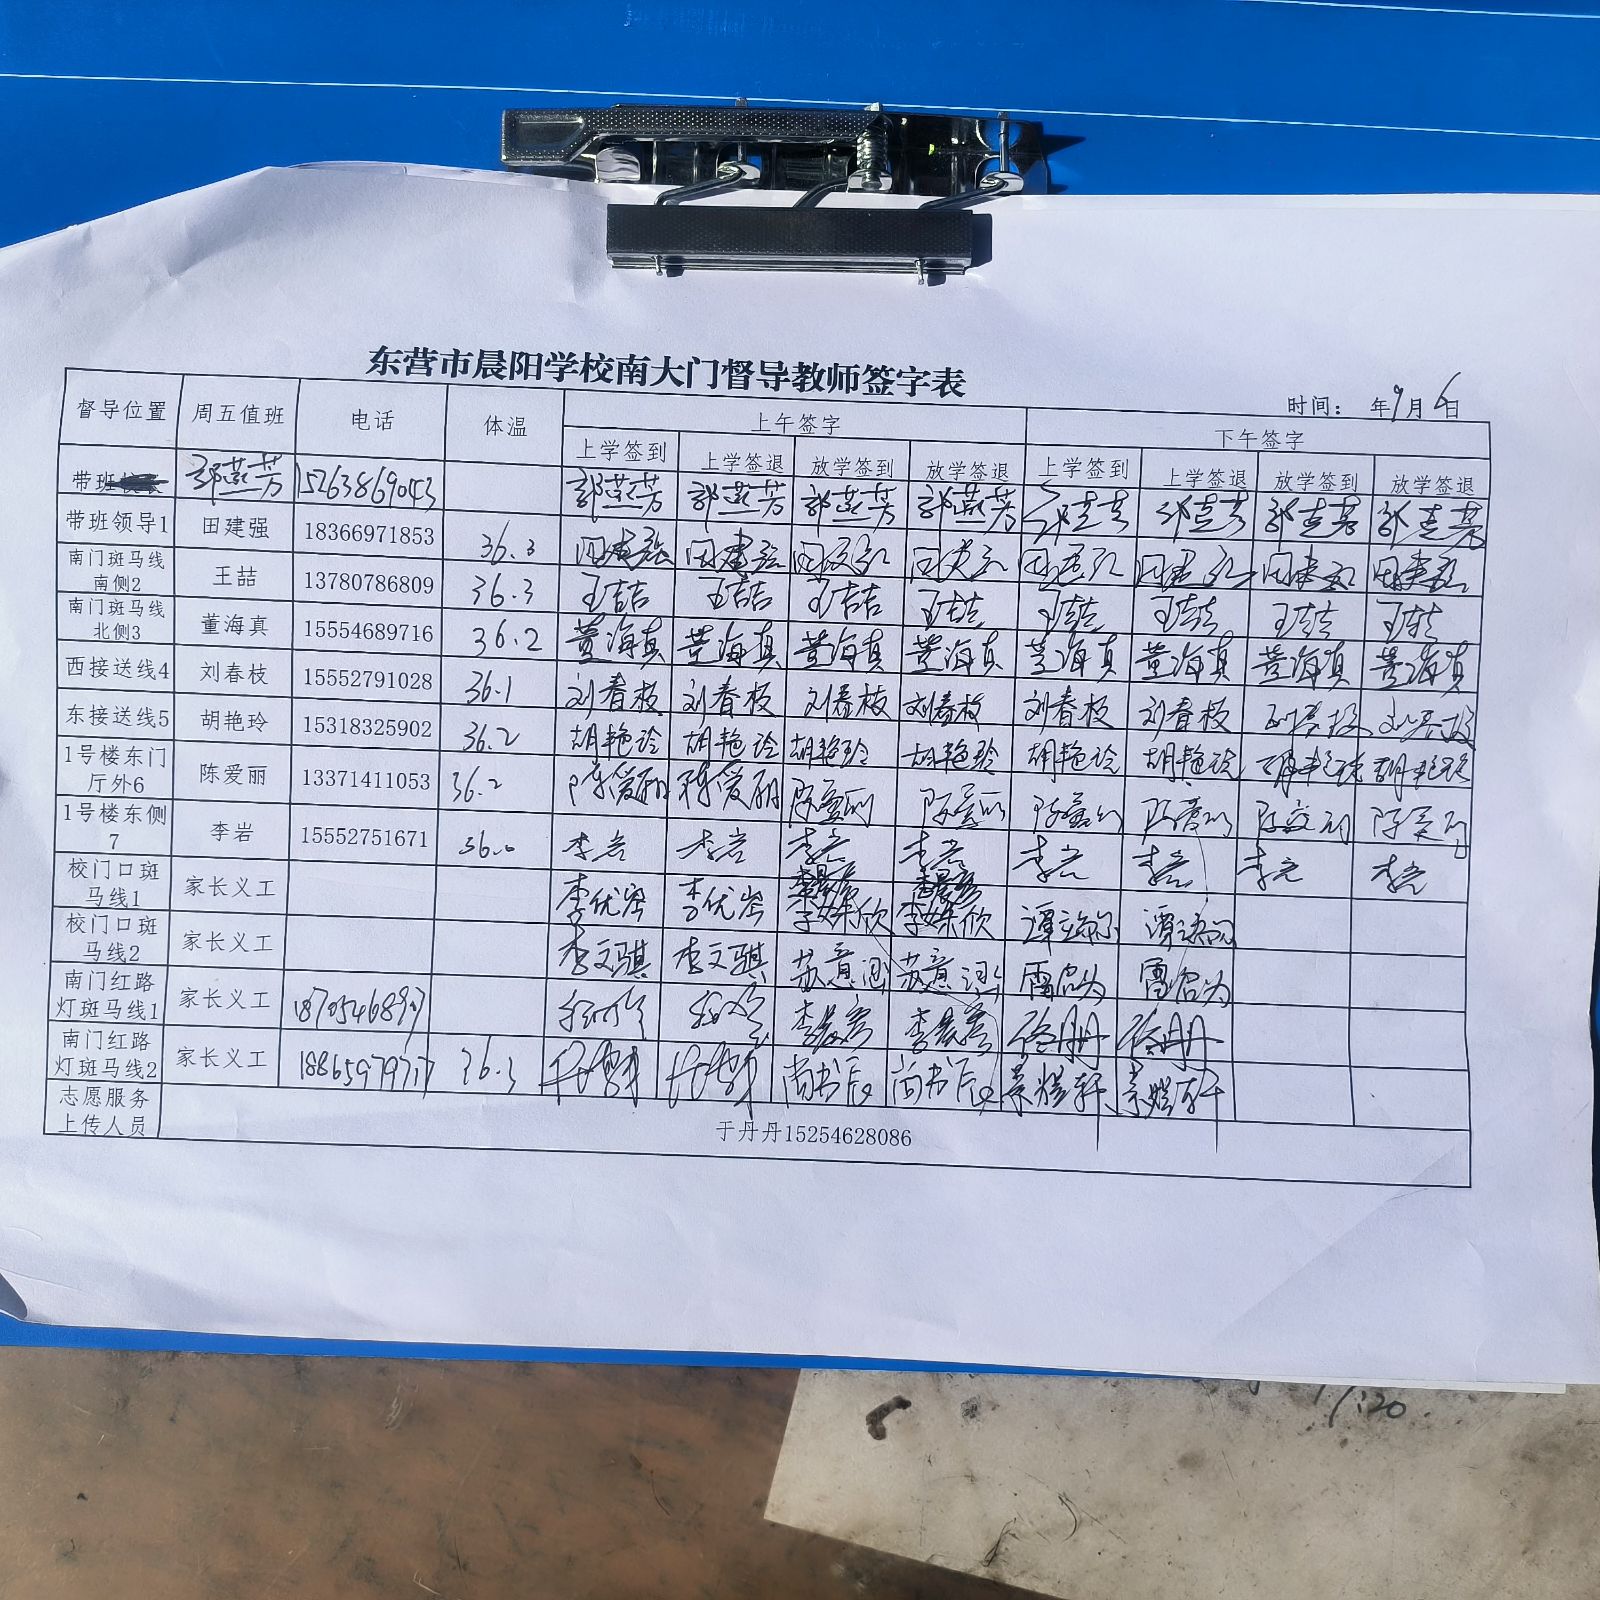 东营市晨阳学校南大门督导教师签字表
时间： 年9月6日
督导位置 周五值班 电话 体温 上午签字 下午签字
上学签到 上学签退 放学签到 放学签退 上学签到 上学签退 放学签到 放学签退
带班 郭燕芳 15263869043 郭燕芳 郭燕芳 郭燕芳 郭燕芳 郭燕芳 郭燕芳 郭燕芳 郭燕芳
带班领导1 田建强 18366971853 36.3 田建强 田建强 田建强 田建强 田建强 田建强 田建强 田建强
南门斑马线
南侧2 王喆 13780786809 36.3 王喆 王喆 王喆 王喆 王喆 王喆 王喆 王喆
南门斑马线
北侧3 董海真 15554689716 36.2 董海真 董海真 董海真 董海真 董海真 董海真 董海真 董海真
西接送线4 刘春枝 15552791028 36.1 刘春枝 刘春枝 刘春枝 刘春枝 刘春枝 刘春枝 刘春枝 刘春枝
东接送线5 胡艳玲 15318325902 36.2 胡艳玲 胡艳玲 胡艳玲 胡艳玲 胡艳玲 胡艳玲 胡艳玲 胡艳玲
1号楼东门
厅外6 陈爱丽 13371411053 36.2 陈爱丽 陈爱丽 陈爱丽 陈爱丽 陈爱丽 陈爱丽 陈爱丽 陈爱丽
1号楼东侧
7 李岩 15552751671 36.0 李岩 李岩 李岩 李岩 李岩 李岩 李岩 李岩
校门口斑
马线1 家长义工 李姝欣 李姝欣
校门口斑
马线2 家长义工 李文骐 李文骐 苏意涵 苏意涵 雷启为 雷启为
南门红路
灯斑马线1 家长义工 李晨宾 李晨宾
南门红路
灯斑马线2 家长义工 18865979717 36.3 尚书辰 尚书辰
志愿服务
上传人员 于丹丹15254628086
:20